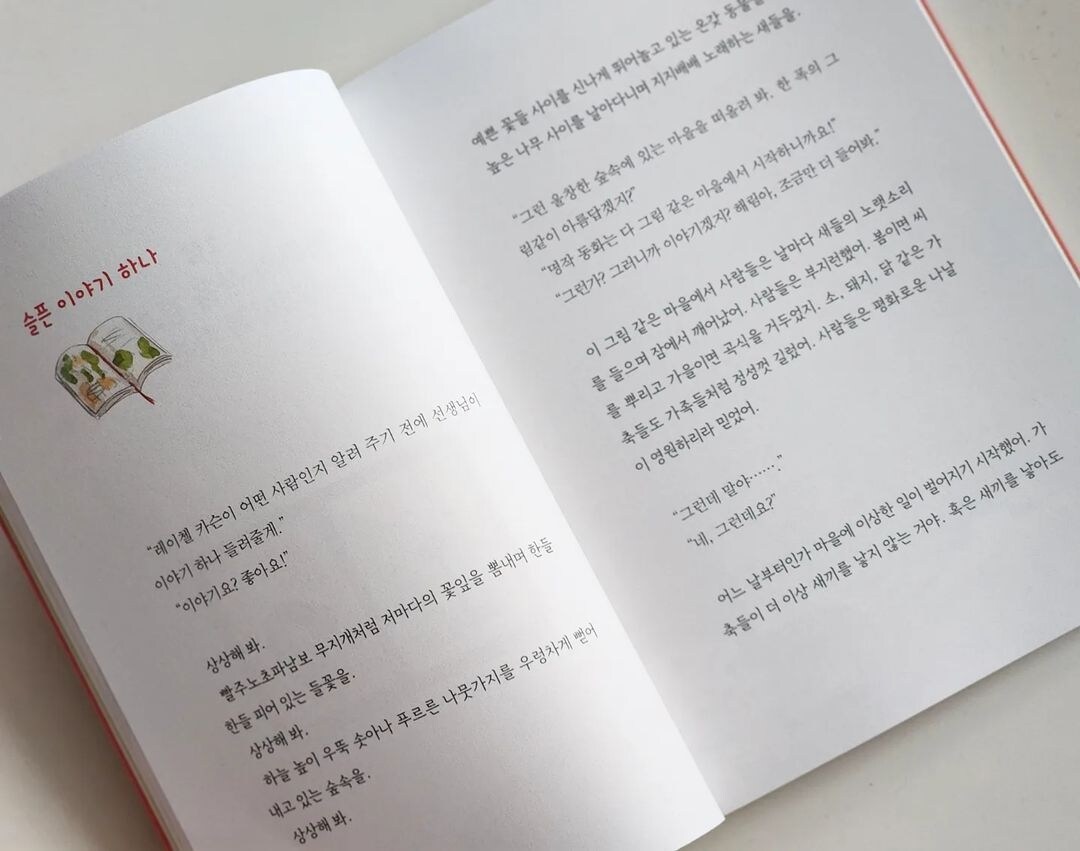 슬픈 이야기 하나
“레이첼 카슨이 어떤 사람인지 알려 주기 전에 선생님이
이야기 하나 들려줄게.”
“이야기요? 좋아요!”
상상해 봐.
빨주노초파남보 무지개처럼 저마다의 꽃잎을 뽐내며 한들
한들 피어 있는 들꽃을.
상상해 봐.
하늘 높이 우뚝 솟아나 푸르른 나뭇가지를 우렁차게 뻗어
내고 있는 숲속을.
상상해 봐.
예쁜 꽃들 사이를 신나게 뛰어놀고 있는 온갖 동물을
높은 나무 사이를 날아다니며 지지배배 노래하는 새들을.
“그런 울창한 숲속에 있는 마을을 떠올려 봐. 한 폭의 그
림같이 아름답겠지?”
“명작 동화는 다 그림 같은 마을에서 시작하니까요!”
“그런가? 그러니까 이야기겠지? 해림아, 조금만 더 들어봐.”
이 그림 같은 마을에서 사람들은 날마다 새들의 노랫소리
를 들으며 잠에서 깨어났어. 사람들은 부지런했어. 봄이면 씨
를 뿌리고 가을이면 곡식을 거두었지. 소, 돼지, 닭 같은 가
축들도 가족들처럼 정성껏 길렀어. 사람들은 평화로운 나날
이 영원하리라 믿었어.
“그런데 말야…….”
“네, 그런데요?”
어느 날부터인가 마을에 이상한 일이 벌어지기 시작했어. 가
축들이 더 이상 새끼를 낳지 않는 거야. 혹은 새끼를 낳아도